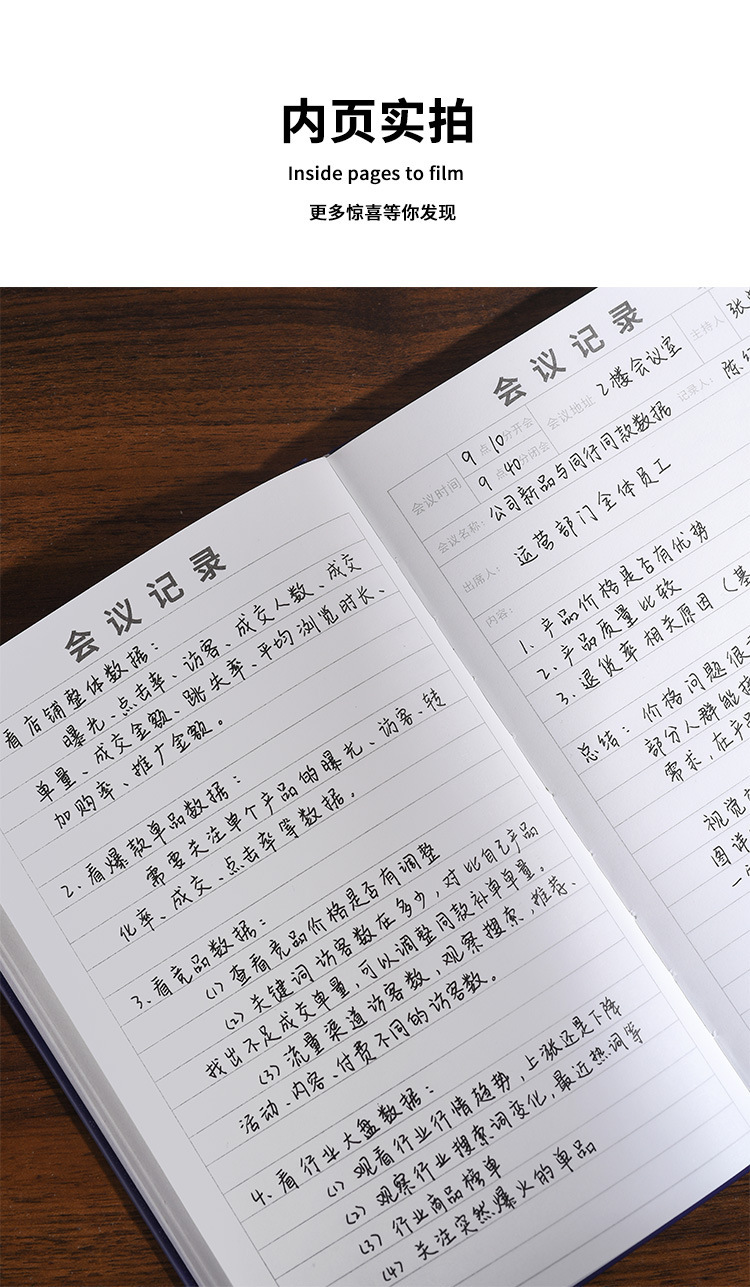 内页实拍
Inside pages to film
更多惊喜等你发现
会议记录
看店铺整体数据：
曝光、点击率、访客、成交人数、成交
单量、成交金额、跳失率、平均浏览时长、
加购率、推广金额。
2、看爆款单品数据：
需要关注单个产品的曝光、访客、转
化率、成交、点击率等数据。
3、看竞品数据：
(1) 查看竞品价格是否有调整
(2) 关键词访客数在多少，对比自己产品
找出不足成交单量，可以调整同款补单单量。
(3) 流量渠道访客数，观察搜索、推荐、
活动、内容、付费不同的访客数。
4、看行业大盘数据：
(1) 观看行业行情趋势，上涨还是下降
(2) 观察行业搜索词变化，最近热词等
(3) 行业商品榜单
(4) 关注突然爆火的单品
会议记录
会议时间 9点10分开会 会议地址 2楼会议室 主持人 张
9点40分闭会
会议名称：公司新品与同行同款数据 记录人：陈
出席人：运营部门全体员工
内容：
1、产品价格是否有优势
2、产品质量比较
3、退货率相关原因（基
总结：价格问题很
部分人群能接
需求，在产
视觉
图详
一